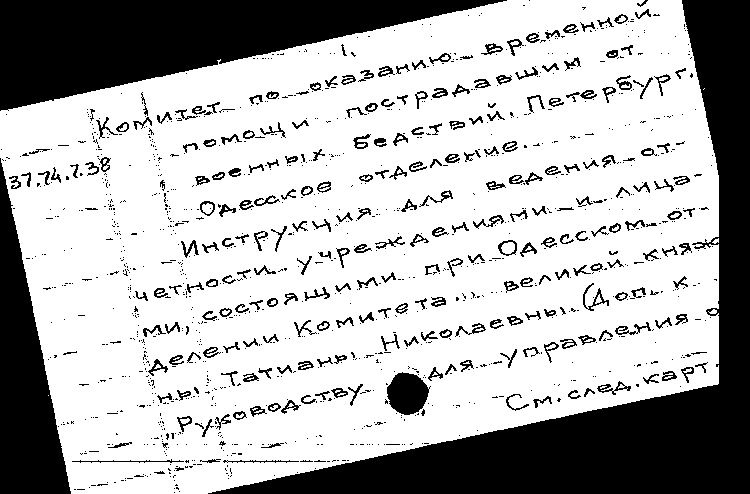 1.
Комитет по оказанию временной
помощи пострадавшим от
военных бедствий. Петербург.
37.74.7.38
Одесское отделение.
Инструкция для ведения от-
четности учреждениями и лица-
ми, состоящими при Одесском от-
делении Комитета... великой княж
ны Татианы Николаевны. (Доп. к
„Руководству для управления о
См. след. карт.